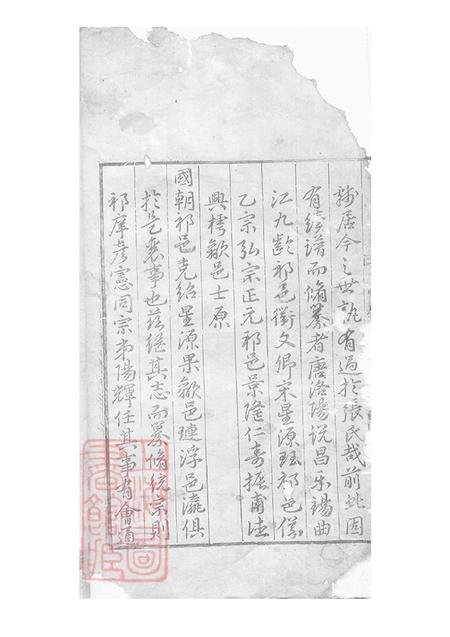 諦居今之世孰有過於張氏哉前此固
有續譜而脩纂者唐洛陽說昌樂錫曲
江九齡祁邑衢文卿宋星源珏祁邑儀
乙宗弘宗正元祁邑景隆仁壽振甫
興樗歙邑士原
國朝祁邑克紹星源果歙邑璉浮邑瀛俱
於是襄事也茲繼其志而纂脩統宗則
祁庠彥憲同宗弟陽輝任其事有會通